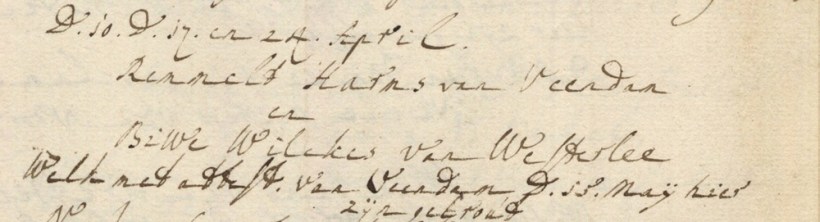 D. 10. D. 17. en 24. April.
Remmelt Harms van Veendam
en
Biwe Wilckes van Westerlee
Welk met attest. van Veendam D. 15. Maÿ hier
zijn getrout